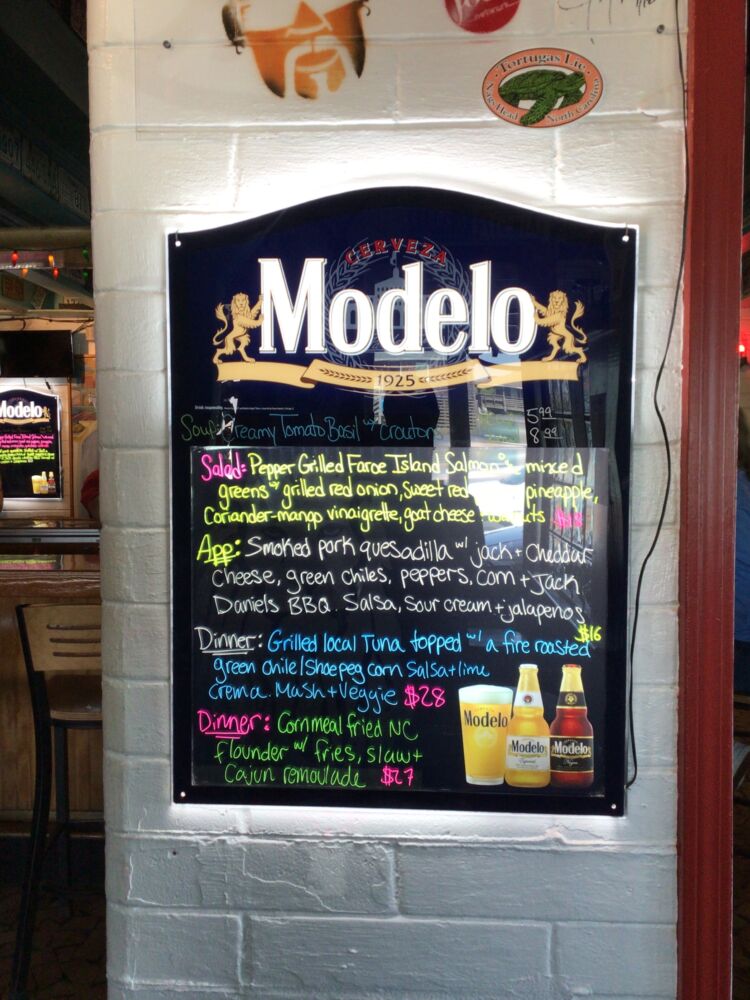 Tortugas Lie
Nags Head North Carolina
CERVEZA
Modelo
1925
Soup: Creamy Tomato Basil w/ Crouton 5.99
8.99
Salad: Pepper Grilled Faroe Island Salmon mixed
greens w/ grilled red onion, sweet red pineapple,
Coriander-mango vinaigrette, goat cheese +
App: Smoked pork quesadilla w/ jack + Cheddar
Cheese, green chiles, peppers, corn + Jack
Daniels BBQ. Salsa, Sour cream + jalapenos
$16
Dinner: Grilled local Tuna topped w/ a fire roasted
green chile/Shoepeg corn Salsa + lime
Crema. Mash + Veggie $28
Dinner: Cornmeal fried NC
flounder w/ fries, slaw +
Cajun remoulade $27
Modelo
Modelo
Modelo
Modelo